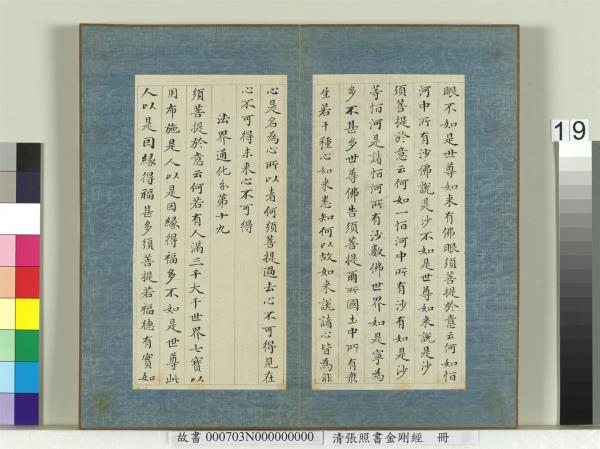 眼不如是世尊如來有佛眼須菩提於意云何如恒
河中所有沙佛說是沙不如是世尊如來說是沙
須菩提於意云何如一恒河中所有沙有如是沙
等恒河是諸恒河所有沙數佛世界如是寧為
多不甚多世尊佛告須菩提爾所國土中所有衆
生若干種心如來悉知何以故如來說諸心皆為非
心是名為心所以者何須菩提過去心不可得見在
心不可得未來心不可得
法界通化分第十九
須菩提於意云何若有人滿三千大千世界七寶以
用布施是人以是因緣得福多不如是世尊此
人以是因緣得福甚多須菩提若福德有實如
19
故書 000703N000000000 清張照書金剛經 冊